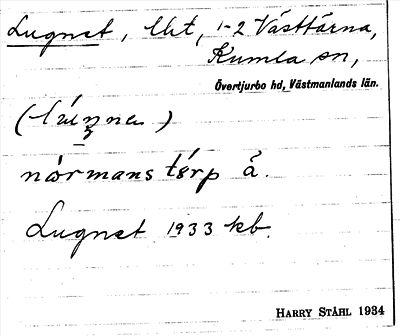 Lugnet, lht, 1-2 Västtärna,
Kumla sn,
Övertjurbo hd, Västmanlands län.
)
normans torp å.
Lugnet 1933 kb.
HARRY STÅHL 1934